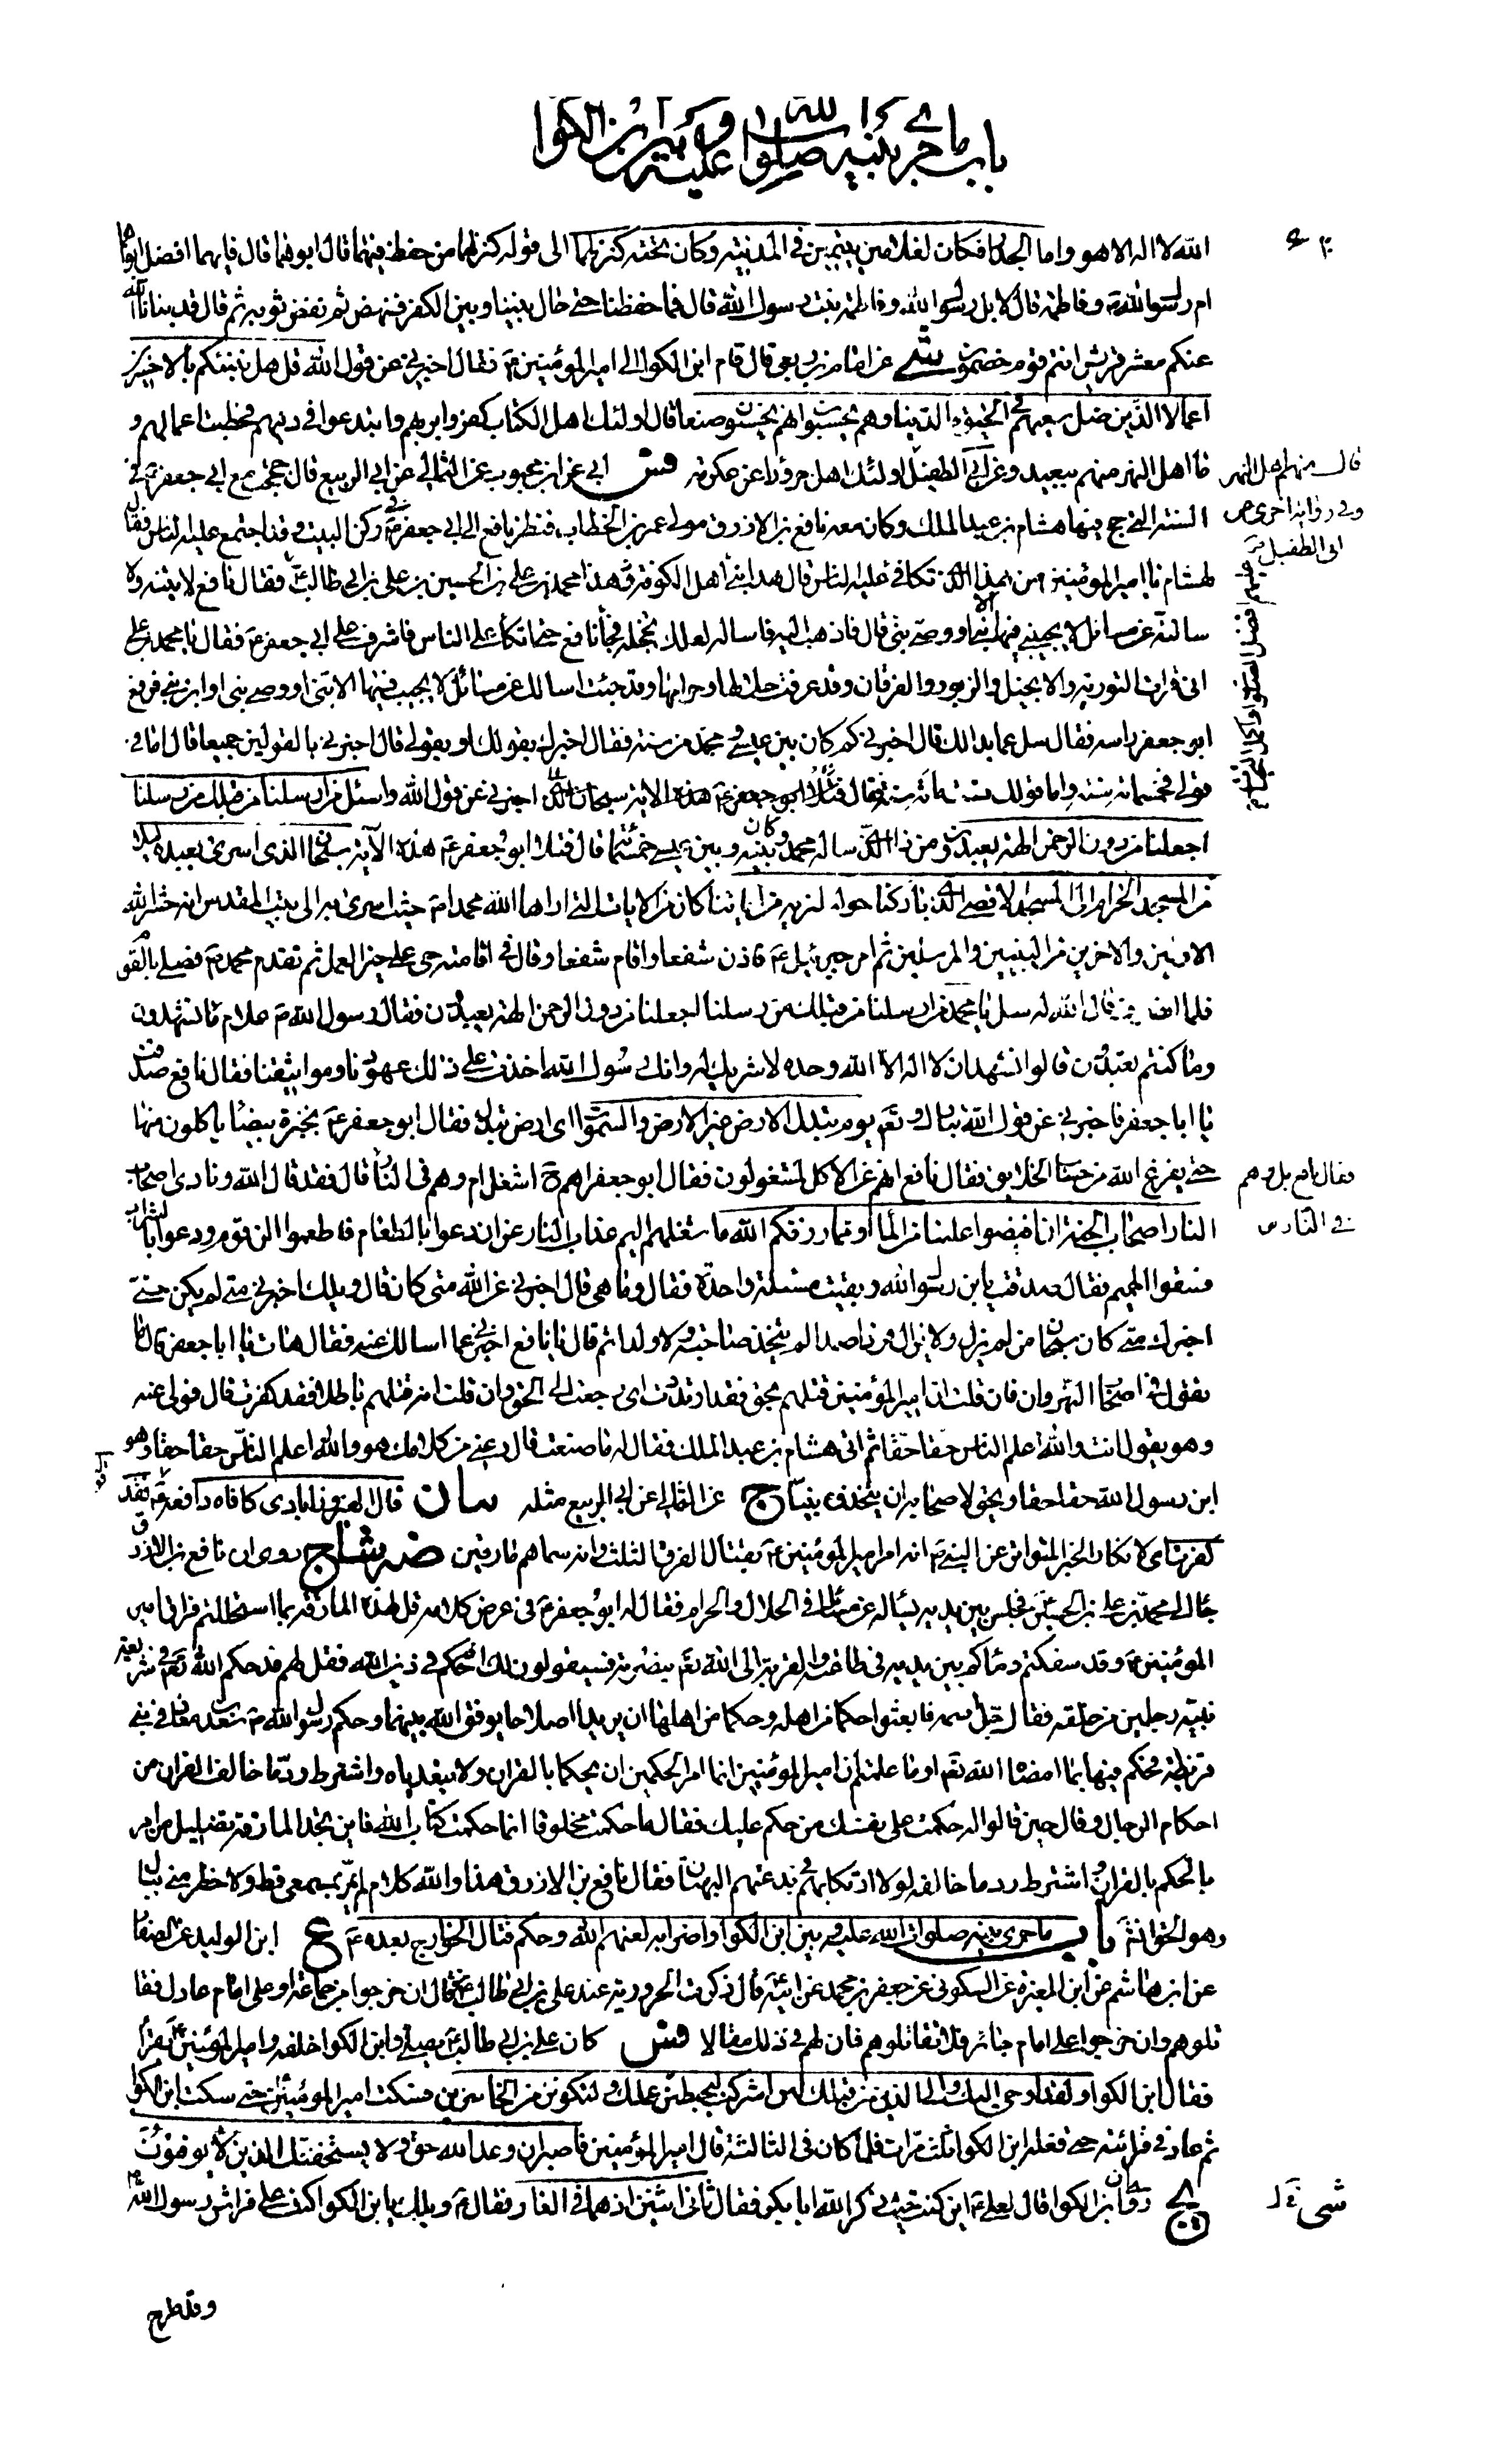 باب ما جرى بينه صلوات الله عليه وبين ابن الكوا
الله لا اله الا هو واما الجدار فكان لغلامين يتيمين في المدينة وكان تحته كنز لهما الى قوله كنزلهما من حفظ فيهما قال ابوهما قال فايهما افضل ابوهما
ام رسول الله وفاطمة قال لا بل رسول الله وفاطمة بنت رسول الله قال فما حفظنا حتى حال بيننا وبين الكفر فنهض ثم نفض ثوبه ثم قال قد نبانا الله
عنكم معشر قريش انتم قوم خصمون شى عن امام بن ربعى قال قام ابن الكوا الى امير المؤمنين ع فقال اخبرني عن قول الله قل هل ننبئكم بالاخسرين
اعمالا الذين ضل سعيهم في الحيوة الدنيا وهم يحسبون انهم يحسنون صنعا قال اولئك اهل الكتاب كفروا بربهم وابتدعوا في دينهم فحبطت اعمالهم و
ما اهل النهر منهم ببعيد وعن ابي الطفيل اولئك اهل حرورا عن عكرمة فس ابي عن ابن محبوب عن الثمالي عن ابي الربيع قال حججت مع ابي جعفر ع في
السنة التي حج فيها هشام بن عبد الملك وكان معه نافع بن الازرق مولى عمر بن الخطاب فنظر نافع الى ابي جعفر ع في ركن البيت وقد اجتمع عليه الناس فقال
لهشام يا امير المؤمنين من هذا الذي تكافى عليه الناس قال هذا نبي اهل الكوفة هذا محمد بن علي بن الحسين بن علي بن ابي طالب ع فقال نافع لاتينه ولا
سالنه عن مسائل لا يجيبني فيها الا نبي او وصي نبي قال فاذهب اليه فاساله لعلك تخجله فجاء نافع حتى اتكا على الناس فاشرف على ابي جعفر ع فقال يا محمد بن علي
اني قرات التورية والانجيل والزبور والفرقان وقد عرفت حلالها وحرامها وقد جئت اسالك عن مسائل لا يجيب فيها الا نبي او وصي نبي او ابن نبي فرفع
ابو جعفر راسه فقال سل عما بدا لك قال اخبرني كم كان بين عيسى و محمد من سنة فقال اخبرك بقولك او بقولي قال اخبرني بالقولين جميعا قال اما في
قولي فخمسمائة سنة واما قولك ستمائة سنة فقال اخبرني عن قول الله واسئل من ارسلنا من قبلك من رسلنا
اجعلنا من دون الرحمن الهة يعبدون من ذا الذي ساله محمد وكان بينه وبين عيسى خمسمائة قال فتلا ابو جعفر ع هذه الآية سبحان الذي اسرى بعبده ليلا
من المسجد الحرام الى المسجد الاقصى الذي باركنا حوله لنريه من اياتنا كان من الايات التي اراها الله محمدا ص حيث اسرى به الى بيت المقدس انه حشر الله
الاولين والاخرين من النبيين والمرسلين ثم امر جبرئيل ع فاذن شفعا واقام شفعا وقال في اقامته حي على خير العمل ثم تقدم محمد ص فصلى بالقوم
فلما انصرف قال الله له سل يا محمد من ارسلنا من قبلك من رسلنا اجعلنا من دون الرحمن الهة يعبدون فقال رسول الله ص علام تشهدون
وما كنتم تعبدون قالوا نشهد ان لا اله الا الله وحده لا شريك له وانك رسول الله اخذت على ذلك عهودنا ومواثيقنا فقال نافع صدقت
يا ابا جعفر فاخبرني عن قول الله تبارك وتعم يوم تبدل الارض غير الارض والسموات اي ارض تبدل فقال ابو جعفر ع بخبزة بيضا ياكلون منها
حتى يفرغ الله من حساب الخلايق فقال نافع انهم عن الاكل لمشغولون فقال ابو جعفر اهم ح اشغل ام وهم في النار قال فقد قال الله ونادى اصحاب
النار اصحاب الجنة ان افيضوا علينا من الماء او مما رزقكم الله ما شغلهم اليم عذاب النار عن ان دعوا بالطعام فاطعموا الزقوم ودعوا بالشراب
فسقوا الحميم فقال صدقت يا بن رسول الله وبقيت مسئلة واحدة فقال وما هي قال اخبرني عن الله متى كان قال ويلك اخبرني متى لم يكن حتى
اخبرك متى كان سبحان من لم يزل ولا يزال فردا صمدا لم يتخذ صاحبة ولا ولدا ثم قال يا نافع اخبرني عما اسالك عنه فقال هات يا ابا جعفر قال ما
تقول في اصحاب النهروان فان قلت ان امير المؤمنين قتلهم بحق فقد ارتددت اي رجعت الى الحق وان قلت انه قتلهم باطلا فقد كفرت قال فولى عنه
وهو يقول انت والله اعلم الناس حقا حقا ثم اتى هشام بن عبد الملك فقال له ما صنعت قال دعني من كلامك هو والله اعلم الناس حقا حقا وهو
ابن رسول الله حقا حقا ويحق لاصحابه ان يتخذوه نبيا ج عن الثمالي عن ابي الربيع مثله بيان قال الفيروزابادى كافاه دافعه قوله فقد
كفرت اي لانكار الخبر المتواتر عن النبي ص انه امر امير المؤمنين ع بقتال الفرق الثلث وانه سماهم مارقين ضه شا ج روى ان نافع بن الازرق
جا الى محمد بن علي بن الحسين ع فجلس بين يديه يسأله عن مسائل في الحلال والحرام فقال له ابو جعفر ع في عرض كلامه قل لهذه المارقة بما استحللتم فراق امير
المؤمنين ع وقد سفكتم دمائكم بين يديه في طاعته والقربة الى الله تعم بنصرته فسيقولون لك انه حكم في دين الله فقل لهم قد حكم الله تعم في شريعة
نبيه رجلين من خلقه فقال جل اسمه فابعثوا حكما من اهله وحكما من اهلها ان يريدا اصلاحا يوفق الله بينهما وحكم رسول الله ص سعد بن معاذ في بني
قريظة فحكم فيها بما امضاه الله تعم اوما علمتم ان امير المؤمنين انما امر الحكمين ان يحكما بالقران ولا يتعدياه واشترط رد ما خالف القران من
احكام الرجال وقال حين قالوا له حكمت على نفسك من حكم عليك فقال ما حكمت مخلوقا انما حكمت كتاب الله فاين تجد المارقة تضليل من امر
بالحكم بالقران واشترط رد ما خالفه لولا ارتكابهم في بدعتهم البهتان فقال نافع بن الازرق هذا والله كلام ما مر بسمعي قط ولا خطر مني ببال
وهو الحق انشم باب ما جرى بينه صلوات الله عليه وبين ابن الكوا واضرابه لعنهم الله وحكم قتال الخوارج بعده ع ع ابن الوليد عن الصفار
عن ابن هاشم عن ابن المغيرة عن السكوني عن جعفر بن محمد عن ابيه قال ذكرت الحرورية عند علي بن ابي طالب ع قال ان خرجوا من جماعة او على امام عادل فقا
تلوهم وان خرجوا على امام جائر فلا تقاتلوهم فان لهم في ذلك مقالا فس كان علي بن ابي طالب ع يصلي وابن الكوا خلفه وامير المؤمنين ع يقرأ
فقال ابن الكوا ولقد اوحي اليك والى الذين من قبلك لئن اشركت ليحبطن عملك ولتكونن من الخاسرين فسكت امير المؤمنين حتى سكت ابن الكوا
ثم عاد في قرائته حتى فعله ابن الكوا ثلث مرات فلما كان في الثالثة قال امير المؤمنين فاصبر ان وعد الله حق ولا يستخفنك الذين لا يوقنون
يج روى ان ابن الكوا قال لعلي ع اين كنت حيث ذكر الله ابا بكر فقال ثاني اثنين اذ هما في الغار فقال ع ويلك يا بن الكوا كنت على فراش رسول الله ص
قال منهم اهل النهر
وفي رواية اخرى عن
ابي الطفيل
فقال نافع بل وهم
في النار
شى
وقد طرح